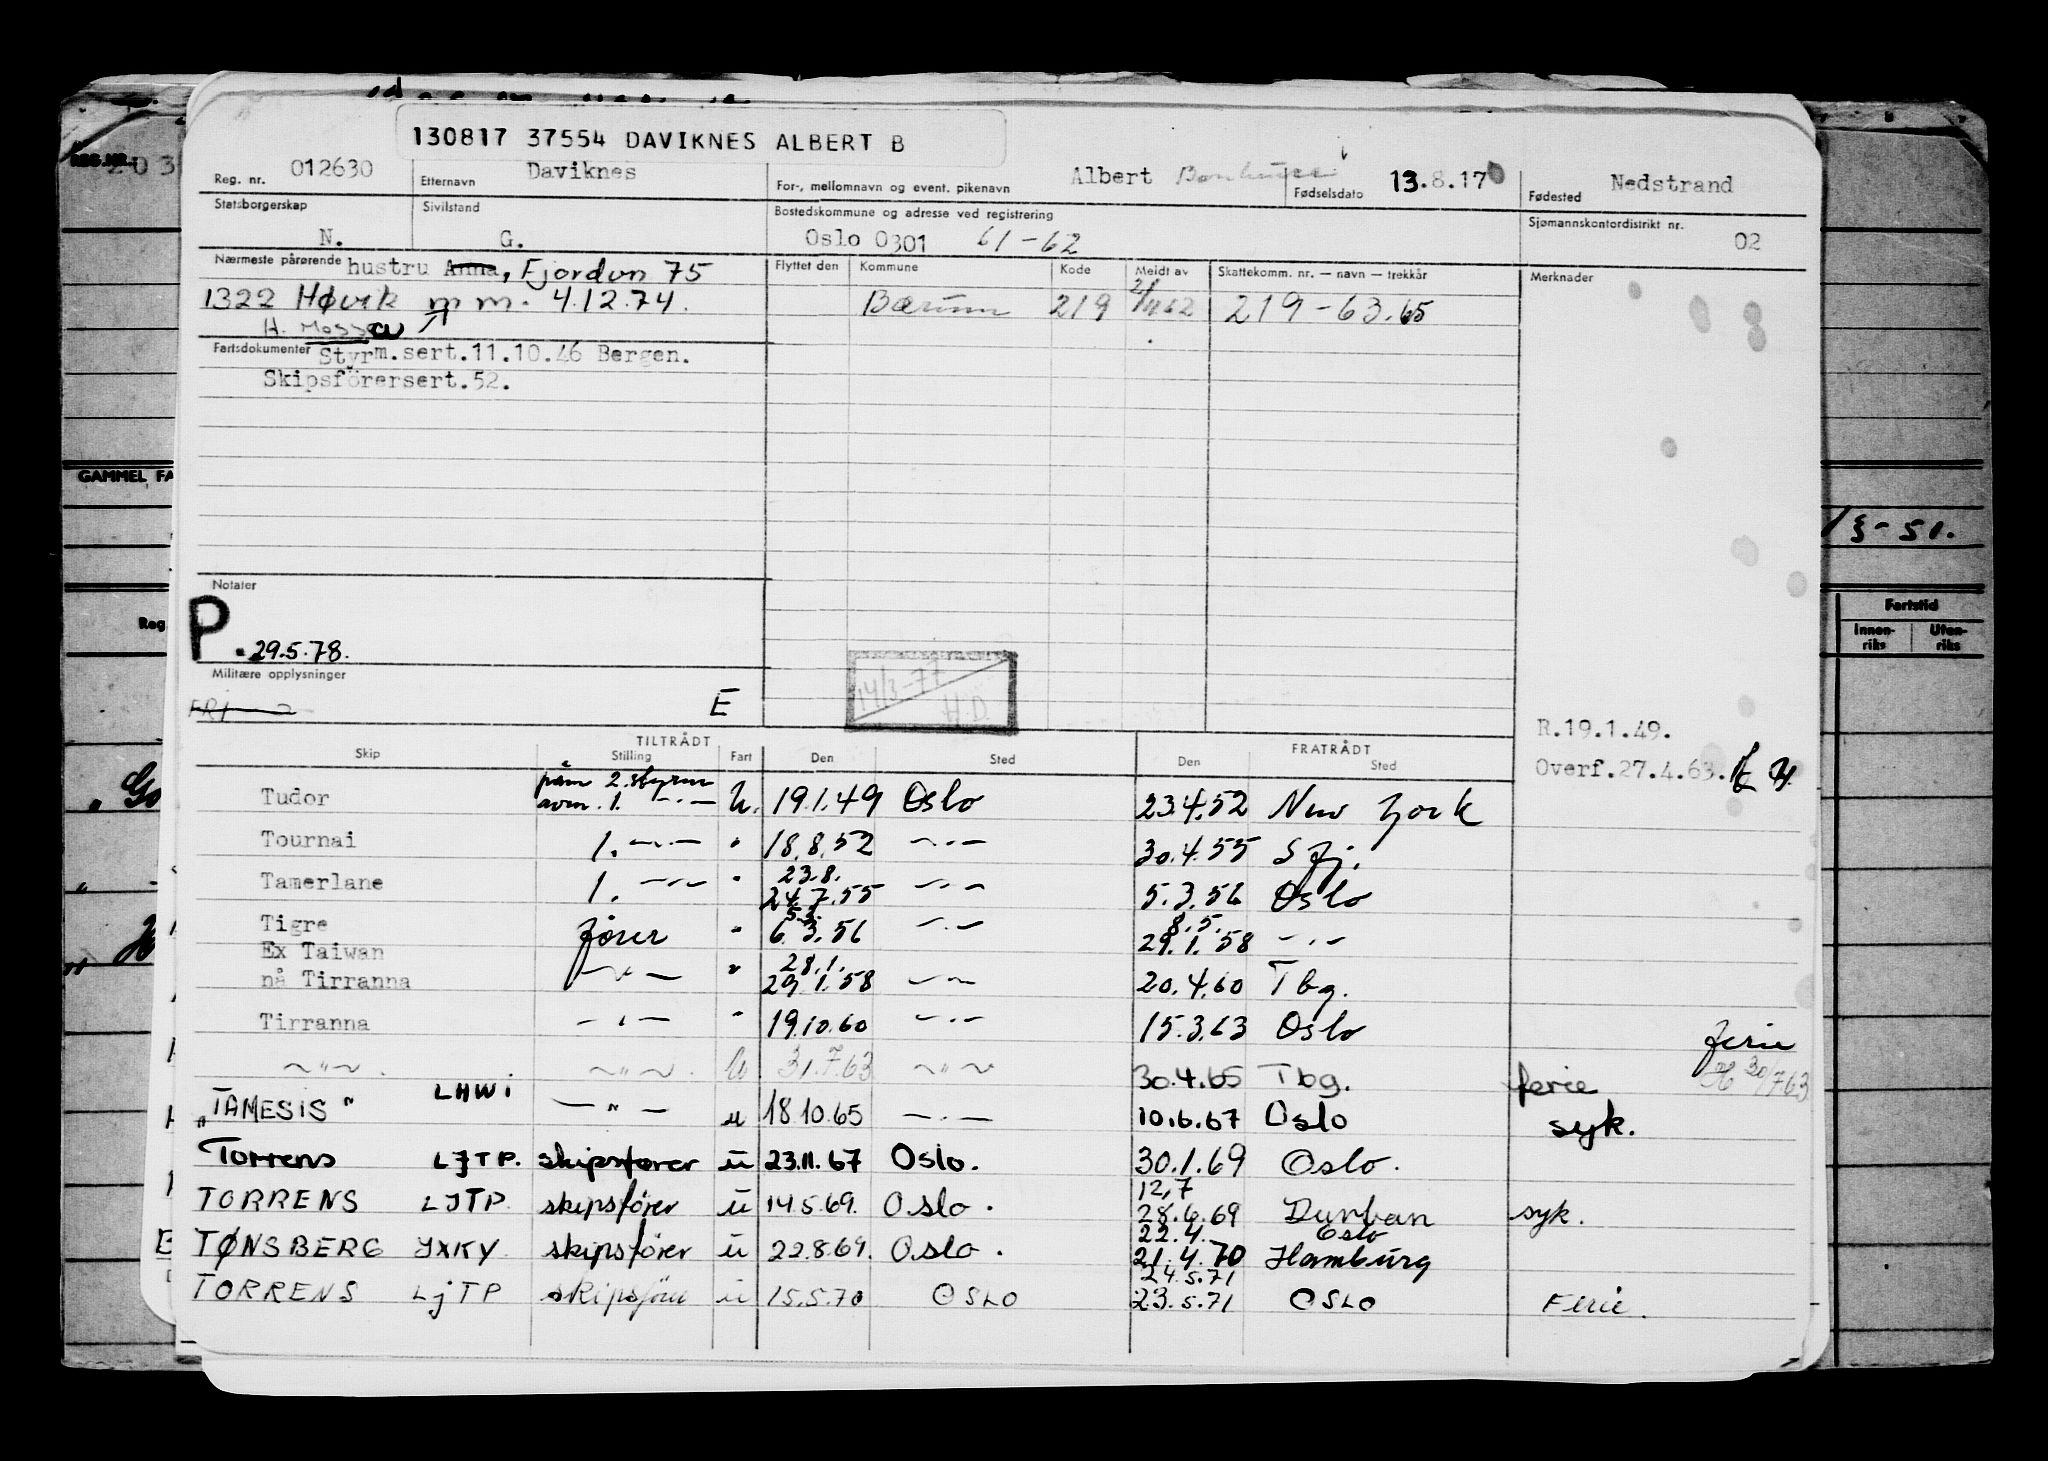 130817 37554 DAVIKNES ALBERT B
REG. NR. 203
Reg. nr. 012630 Etternavn Daviknes For-, mellomnavn og event. pikenavn Albert Fødselsdato 13.8.17 Fødested Nedstrand
Statsborgerskap N. Sivilstand G. Bostedskommune og adresse ved registrering Oslo 0301 61-62 Sjømannskontordistrikt nr. 02
Nærmeste pårørende hustru Anna, Fjordvn 75
1322 Høvik m m. 4.12.74.
H. Mosseau
Flyttet den Kommune Kode Meldt av Skattekomm. nr. — navn — trekkår Merknader
Bærum 219 2/11 62 219-63.65
Fartsdokumenter Styrm.sert.11.10.46 Bergen.
Skipsförersert.52.
GAMMEL FA
1/3-51.
Notater
P. 29.5.78.
Militære opplysninger
FRI E
14/3-77
H.D.
Reg
Fartstid
Innen-riks Uten-riks
R.19.1.49.
Overf.27.4.63.
TILTRÅDT FRATRÅDT
Skip Stilling Fart Den Sted Den Sted
påm 2. styrm
Tudor avm. 1. —"— U. 19.1.49 Oslo 23.4.52 New York
Tournai 1. —"— " 18.8.52 —"— 30.4.55 Sfj.
23.8.
Tamerlane 1. —"— " 24.7.55 —"— 5.3.56 Oslo
5.3. 8.5.
Tigre fører " 6.3.56 —"— 29.1.58 —"—
Ex Taiwan 28.1.
nå Tirranna —"— " 29.1.58 —"— 20.4.60 Tbg.
Tirranna —"— " 19.10.60 —"— 15.3.63 Oslo ferie
—"— —"— U 31.7.63 —"— 30.4.65 Tbg. ferie 30/7 63
"TAMESIS" LHWI —"— u 18.10.65 —"— 10.6.67 Oslo syk.
Torrens LJTP. skipsfører u 23.11.67 Oslo. 30.1.69 Oslo.
12.7
TORRENS LJTP. skipsfører u 14.5.69. Oslo. 28.6.69 Durban syk.
22.4. Oslo
TØNSBERG JXKY. skipsfører u 22.8.69. Oslo. 21.4.70 Hamburg
24.5.71
TORRENS LJTP skipsfører u 15.5.70 OSLO 23.5.71 OSLO Ferie.